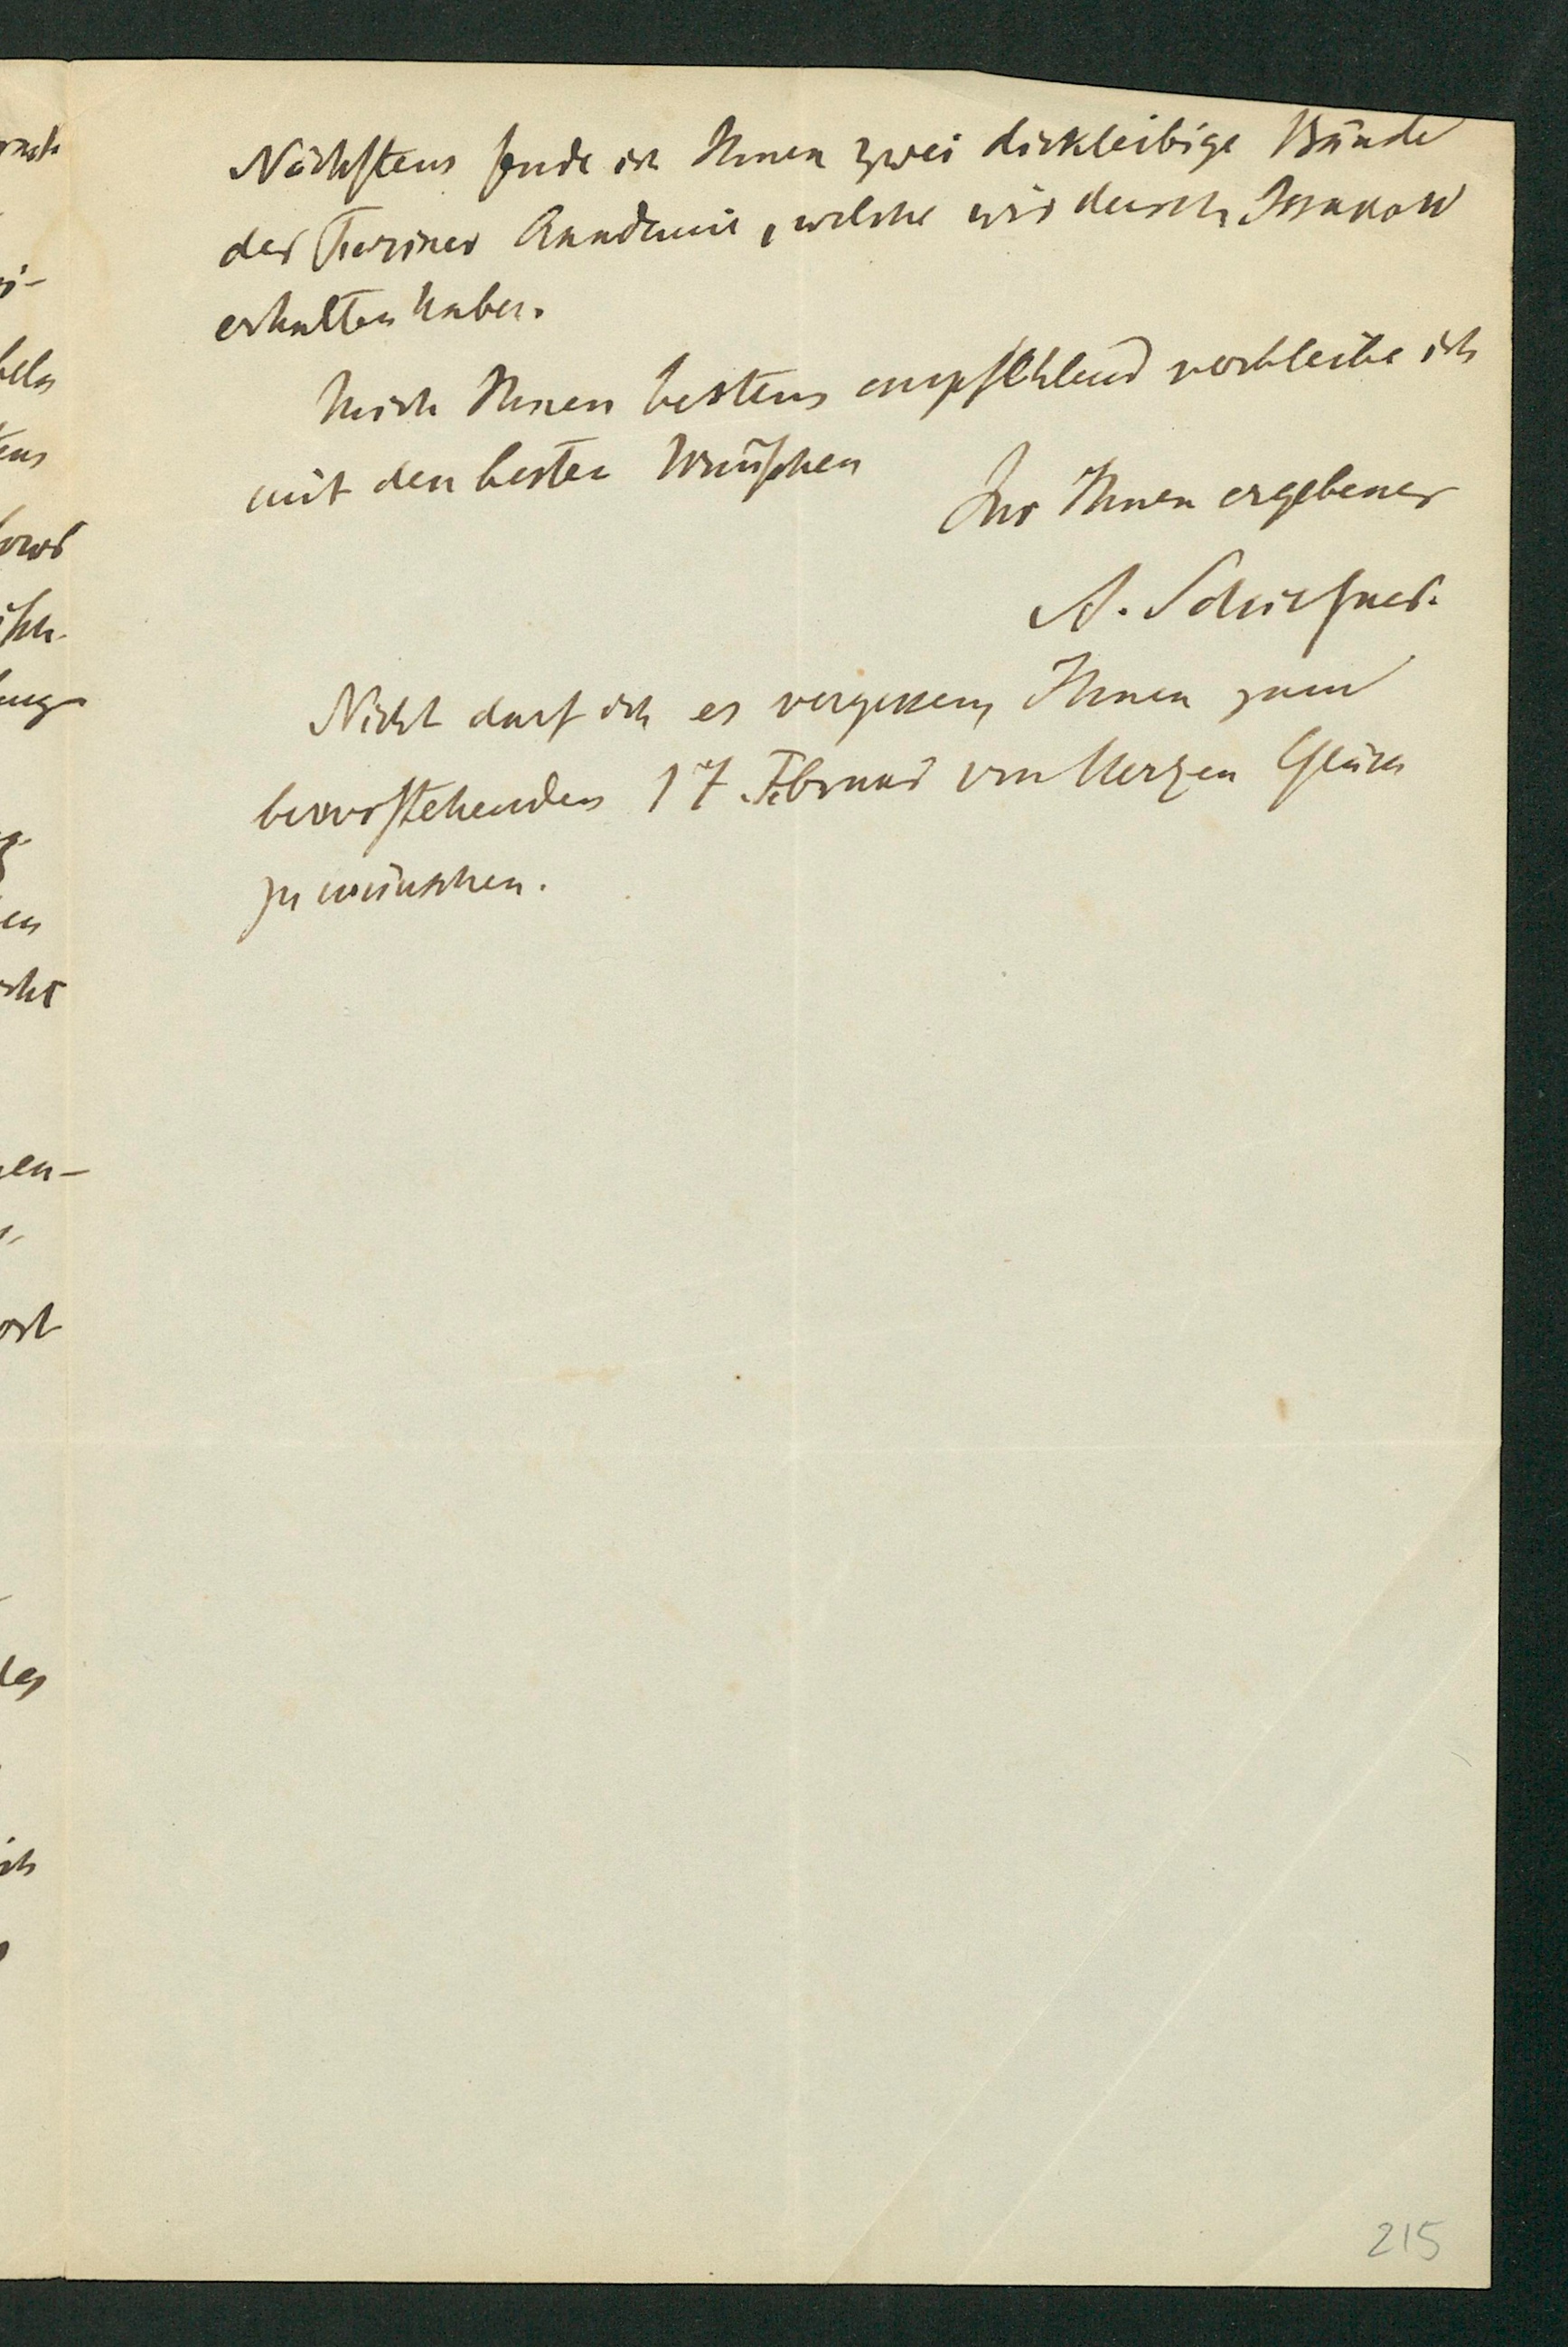 Nächstens sende ich Ihnen zwei dickleibige Bände
der Turiner Academie, welche wir durch Issakow
erhalten haben.
Mich Ihnen bestens empfehlend verbleibe ich
mit den besten Wünschen
Ihr Ihnen ergebener
A. Schiefner.
Nicht darf ich es vergessen, Ihnen zum
bevorstehenden 17 Februar von Herzen Glück
zu wünschen.
215